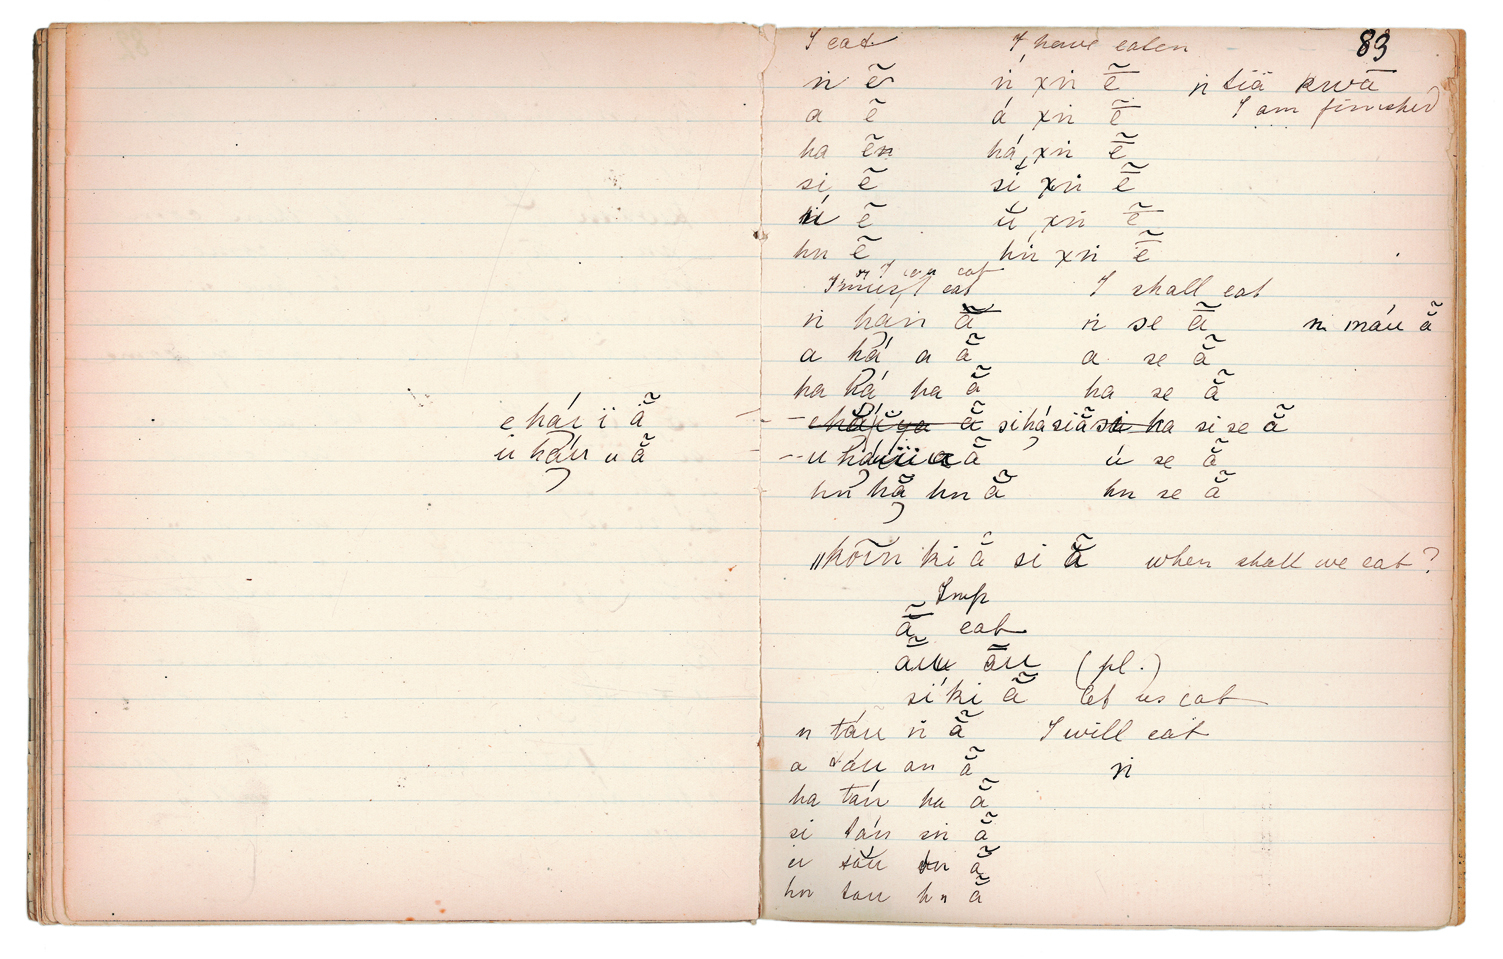 e hár i ã
u háu u ã
83
I eat I have eaten
ni ẽ ni xni ẽ ni tiä kwā
a ẽ á xni ẽ I am finished
ha ẽn há xni ẽ
si ẽ si xni ẽ
ẽ ŭ xni ẽ
hn ẽ hn xni ẽ
or I can eat
I must eat I shall eat
ni háni ã ni se ã ni máu ã
a há a ã a se ã
ha há ha ã ha se ã
ã si há si ã si se ã
u ã ú se ã
hn hã hn ã hn se ã
kōin ki ã si ã when shall we eat?
Imp
ã eat
ãu (pl.)
si ki ã let us eat
n táu ni ã I will eat
a táu an ã ni
ha táu ha ã
si táu sni ã
u táu ã
hn tau hn ã